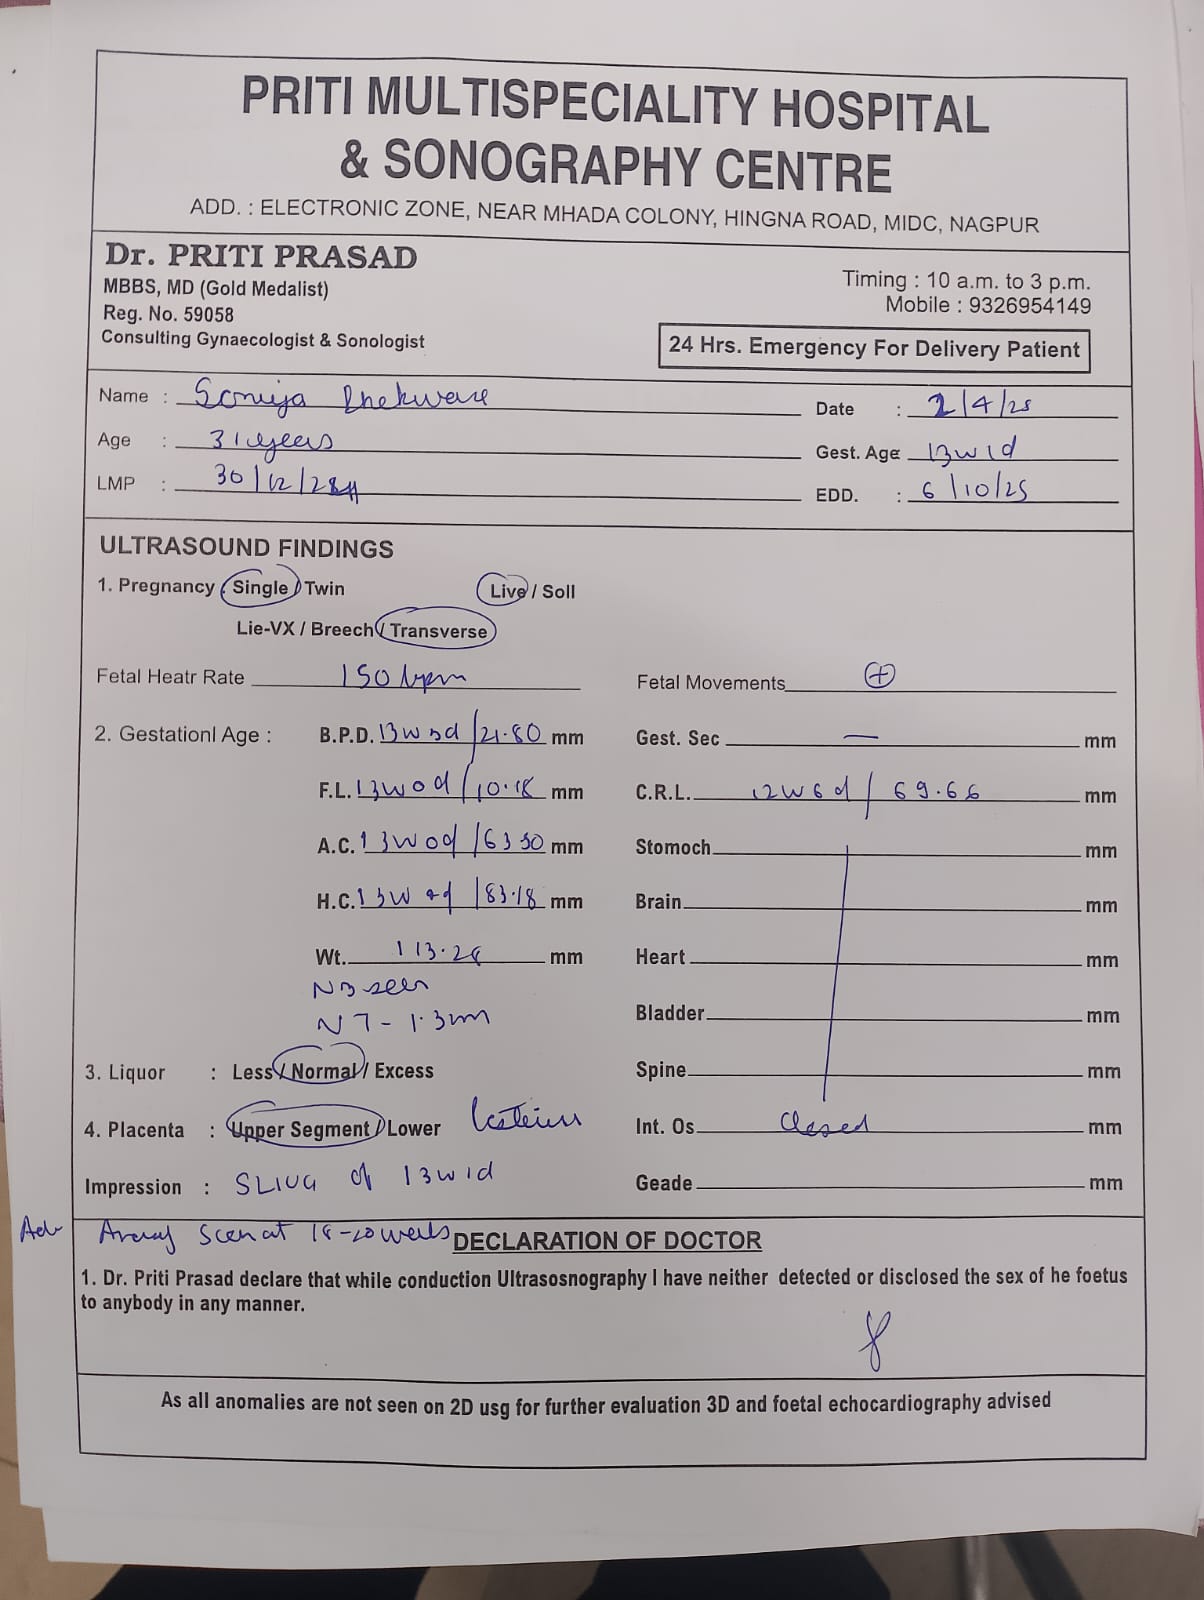 PRITI MULTISPECIALITY HOSPITAL
& SONOGRAPHY CENTRE
ADD. : ELECTRONIC ZONE, NEAR MHADA COLONY, HINGNA ROAD, MIDC, NAGPUR
Dr. PRITI PRASAD
MBBS, MD (Gold Medalist)
Reg. No. 59058
Consulting Gynaecologist & Sonologist
Timing : 10 a.m. to 3 p.m.
Mobile : 9326954149
24 Hrs. Emergency For Delivery Patient
Name :
Date : 2/4/25
Age : 31 years
Gest. Age 13w1d
LMP : 30/12/
EDD. : 6/10/25
ULTRASOUND FINDINGS
1. Pregnancy : Single / Twin Live / Soll
Lie-VX / Breech / Transverse
Fetal Heatr Rate 150 bpm Fetal Movements +
2. Gestationl Age : B.P.D. 21.80 mm Gest. Sec — mm
F.L. 13w0d / 10.18 mm C.R.L. 12w6d / 69.66 mm
A.C. 13w0d / mm Stomoch mm
H.C. 13w /83.18 mm Brain mm
Wt. mm Heart mm
NB seen
NT - 1.3mm Bladder mm
3. Liquor : Less / Normal / Excess Spine mm
4. Placenta : Upper Segment / Lower Int. Os closed mm
Impression : SLIUG of 13w1d Geade mm
Adv Scan at 18-20 weeks
DECLARATION OF DOCTOR
1. Dr. Priti Prasad declare that while conduction Ultrasosnography I have neither detected or disclosed the sex of he foetus
to anybody in any manner.
As all anomalies are not seen on 2D usg for further evaluation 3D and foetal echocardiography advised